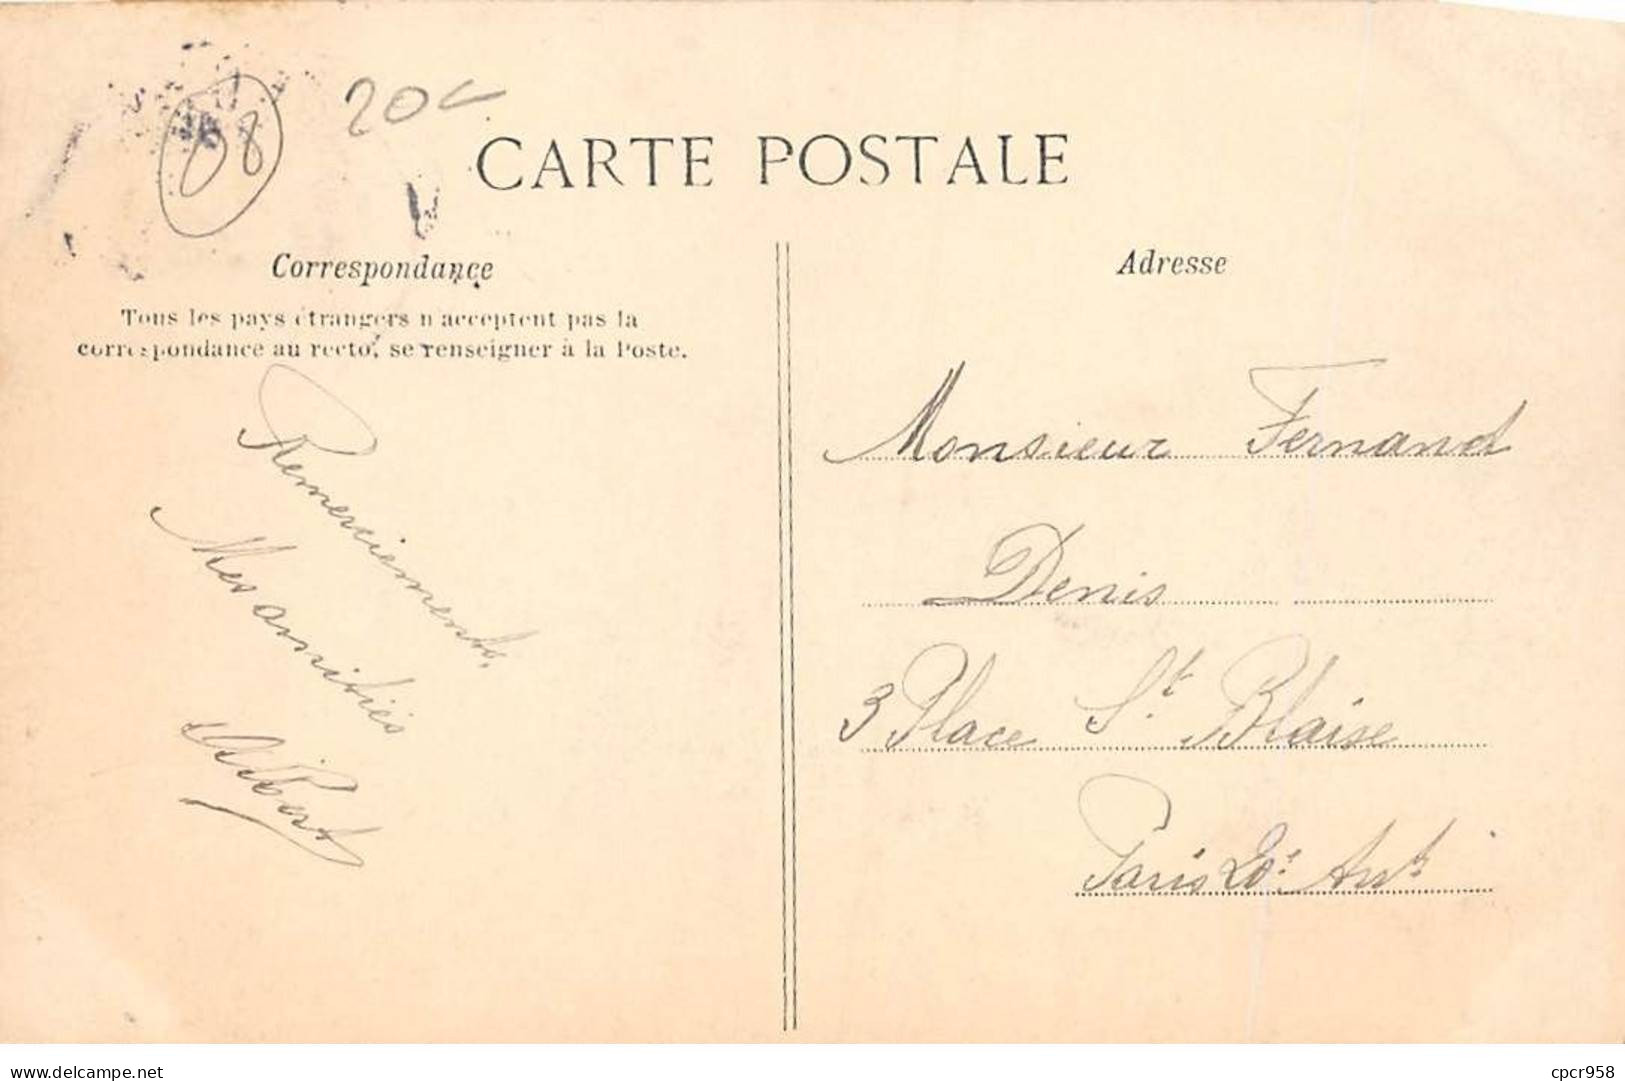 08
20
CARTE POSTALE
Correspondance
Tous les pays étrangers n'acceptent pas la
correspondance au recto, se renseigner à la Poste.
Remerciements.
Mes amitiés
Albert
Adresse
Monsieur Fernand
Denis
3 Place St. Blaise
Paris 20e Art
www.delcampe.net
cpcr958